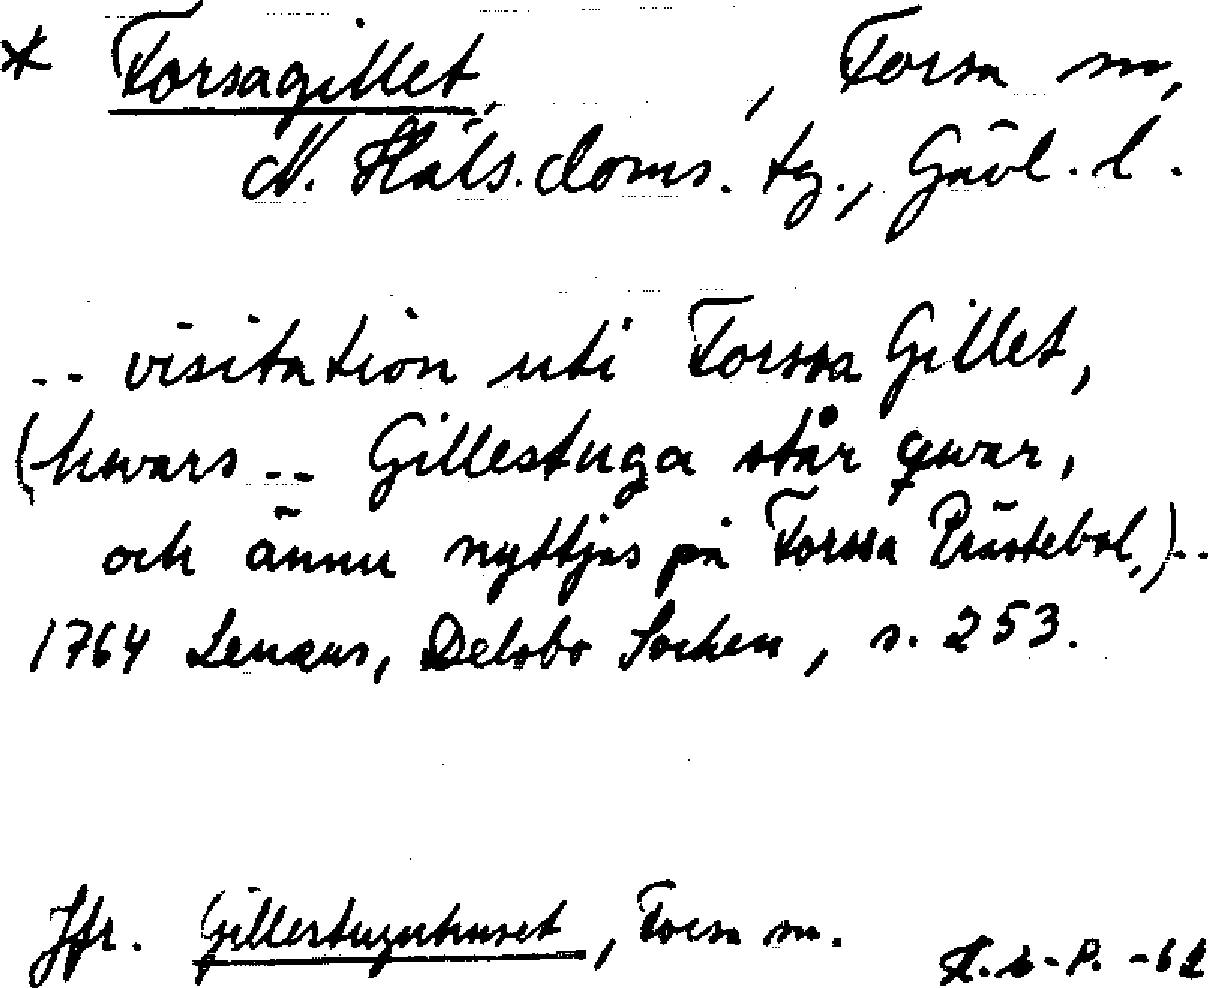 * Forsagillet, , Forsa sn,
N. Häls. doms. tg., Gävl. l.
.. visitation uti Forssa Gillet,
(hwars .. Gillestuga står qwar,
och ännu nyttjas på Forssa Prästebol,)..
1764 Lenæus, Delsbo Socken, s. 253.
Jfr. Gillestuguhuset, Forsa sn.